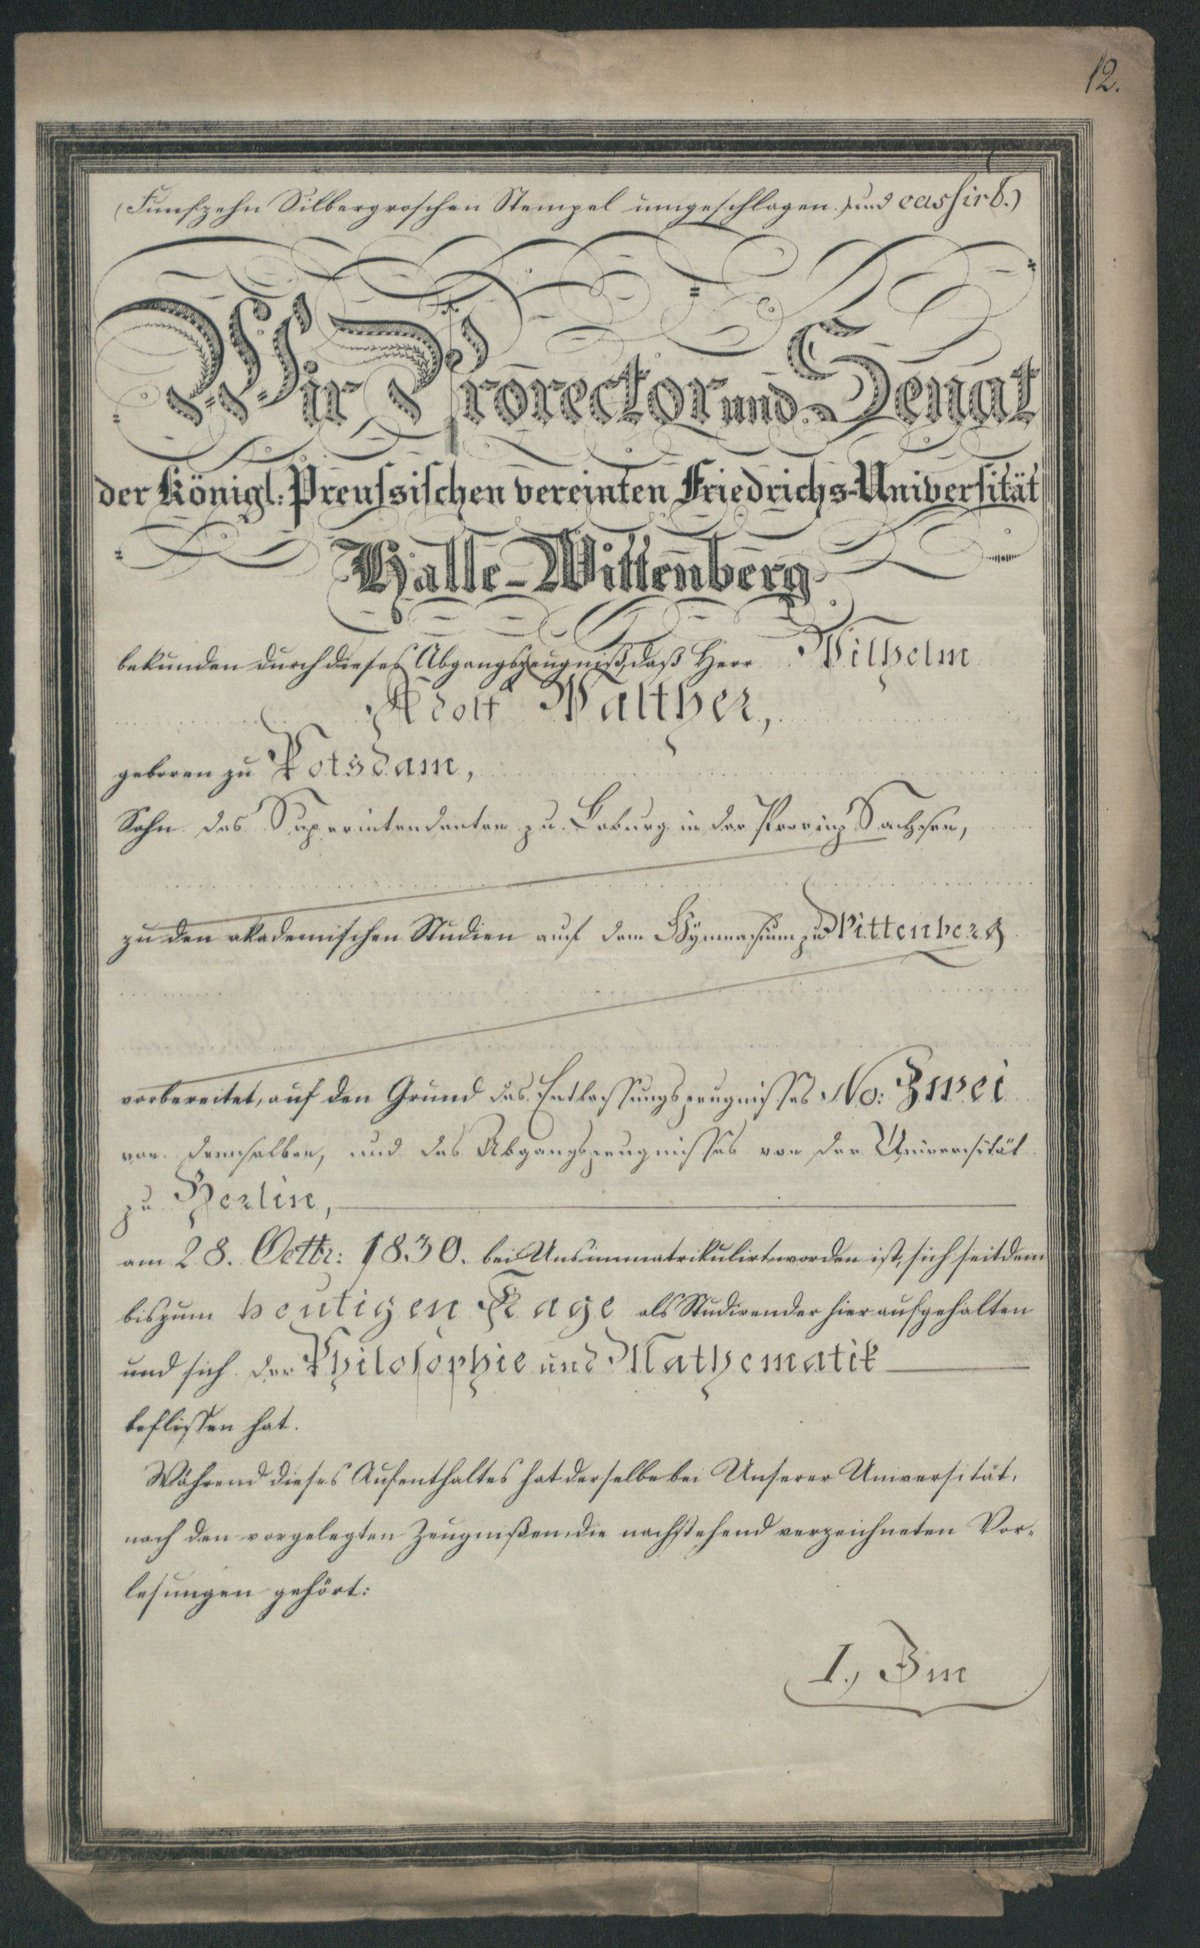 12.
(Funfzehn Silbergroschen Stempel umgeschlagen und cassirt.)
Wir Prorector und Senat
der Königl: Preuſsiſchen vereinten Friedrichs-Univerſität
Halle-Wittenberg
bekunden durch dieses Abgangszeugniß, daß Herr Wilhelm
Adolf Walther,
geboren zu Potsdam,
Sohn des Superintendenten zu Loburg in der Provinz Sachsen,
zu den akademischen Studien auf dem Gymnasium zu Wittenberg
vorbereitet, auf den Grund des Entlassungszeugnisses No: Zwei
von demselben, und des Abgangszeugnisses von der Universität
zu Berlin,
am 28. Octbr: 1830. bei Uns immatrikulirt worden ist, sich seitdem
bis zum heutigen Tage als Studirender hier aufgehalten
und sich der Philosophie und Mathematik
beflissen hat.
Während dieses Aufenthaltes hat derselbe bei Unserer Universität,
nach den vorgelegten Zeugnißen die nachstehend verzeichneten Vor-
lesungen gehört:
I., Im